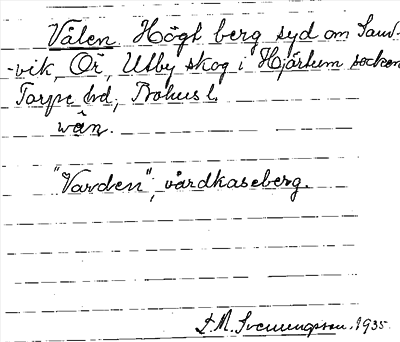 Vålen. Högt berg syd om Sand-
-vik, Ör, Utby skog i Hjärtum socken
Torpe hd, Bohus l.
vån.
"Varden", vårdkaseberg.
J. M. Svenungsson. 1935.